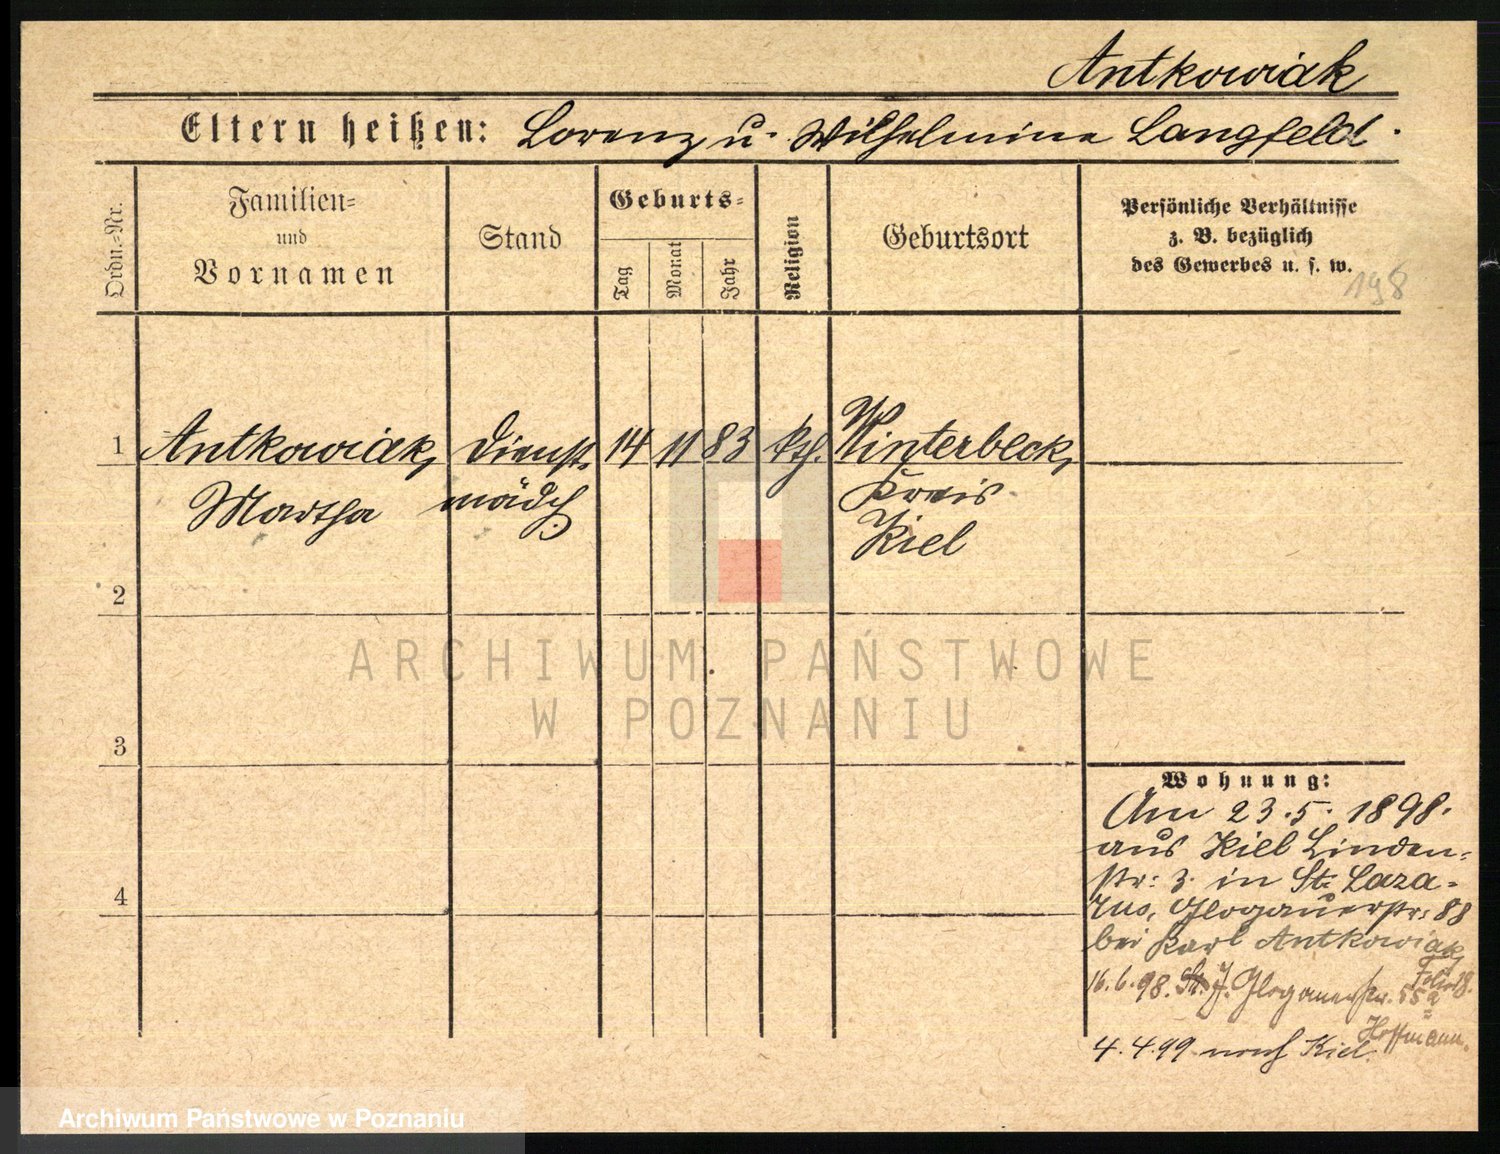 Antkowiak
Eltern heißen: Lorenz u. Wilhelmine Langfeld.
Ordn.=Nr.
Familien=
und
Vornamen
Stand
Geburts=
Tag
Monat
Jahr
Religion
Geburtsort
Persönliche Verhältnisse
z. B. bezüglich
des Gewerbes u. s. w.
198
1 Antkowiak, Dienst= 14 11 83 kth. Winterbeck,
Martha mädch. Kreis
Kiel
2
ARCHIWUM PAŃSTWOWE
W POZNANIU
3
4
Wohnung:
Am 23.5. 1898.
aus Kiel Linden=
str: 3. in St. Laza=
rus, Glogauerstr: 88
bei Karl Antkowiak,
16.6.98. J. Glogauerstr. 55a
Hoffmann.
4.4.99 nach Kiel.
Archiwum Państwowe w Poznaniu